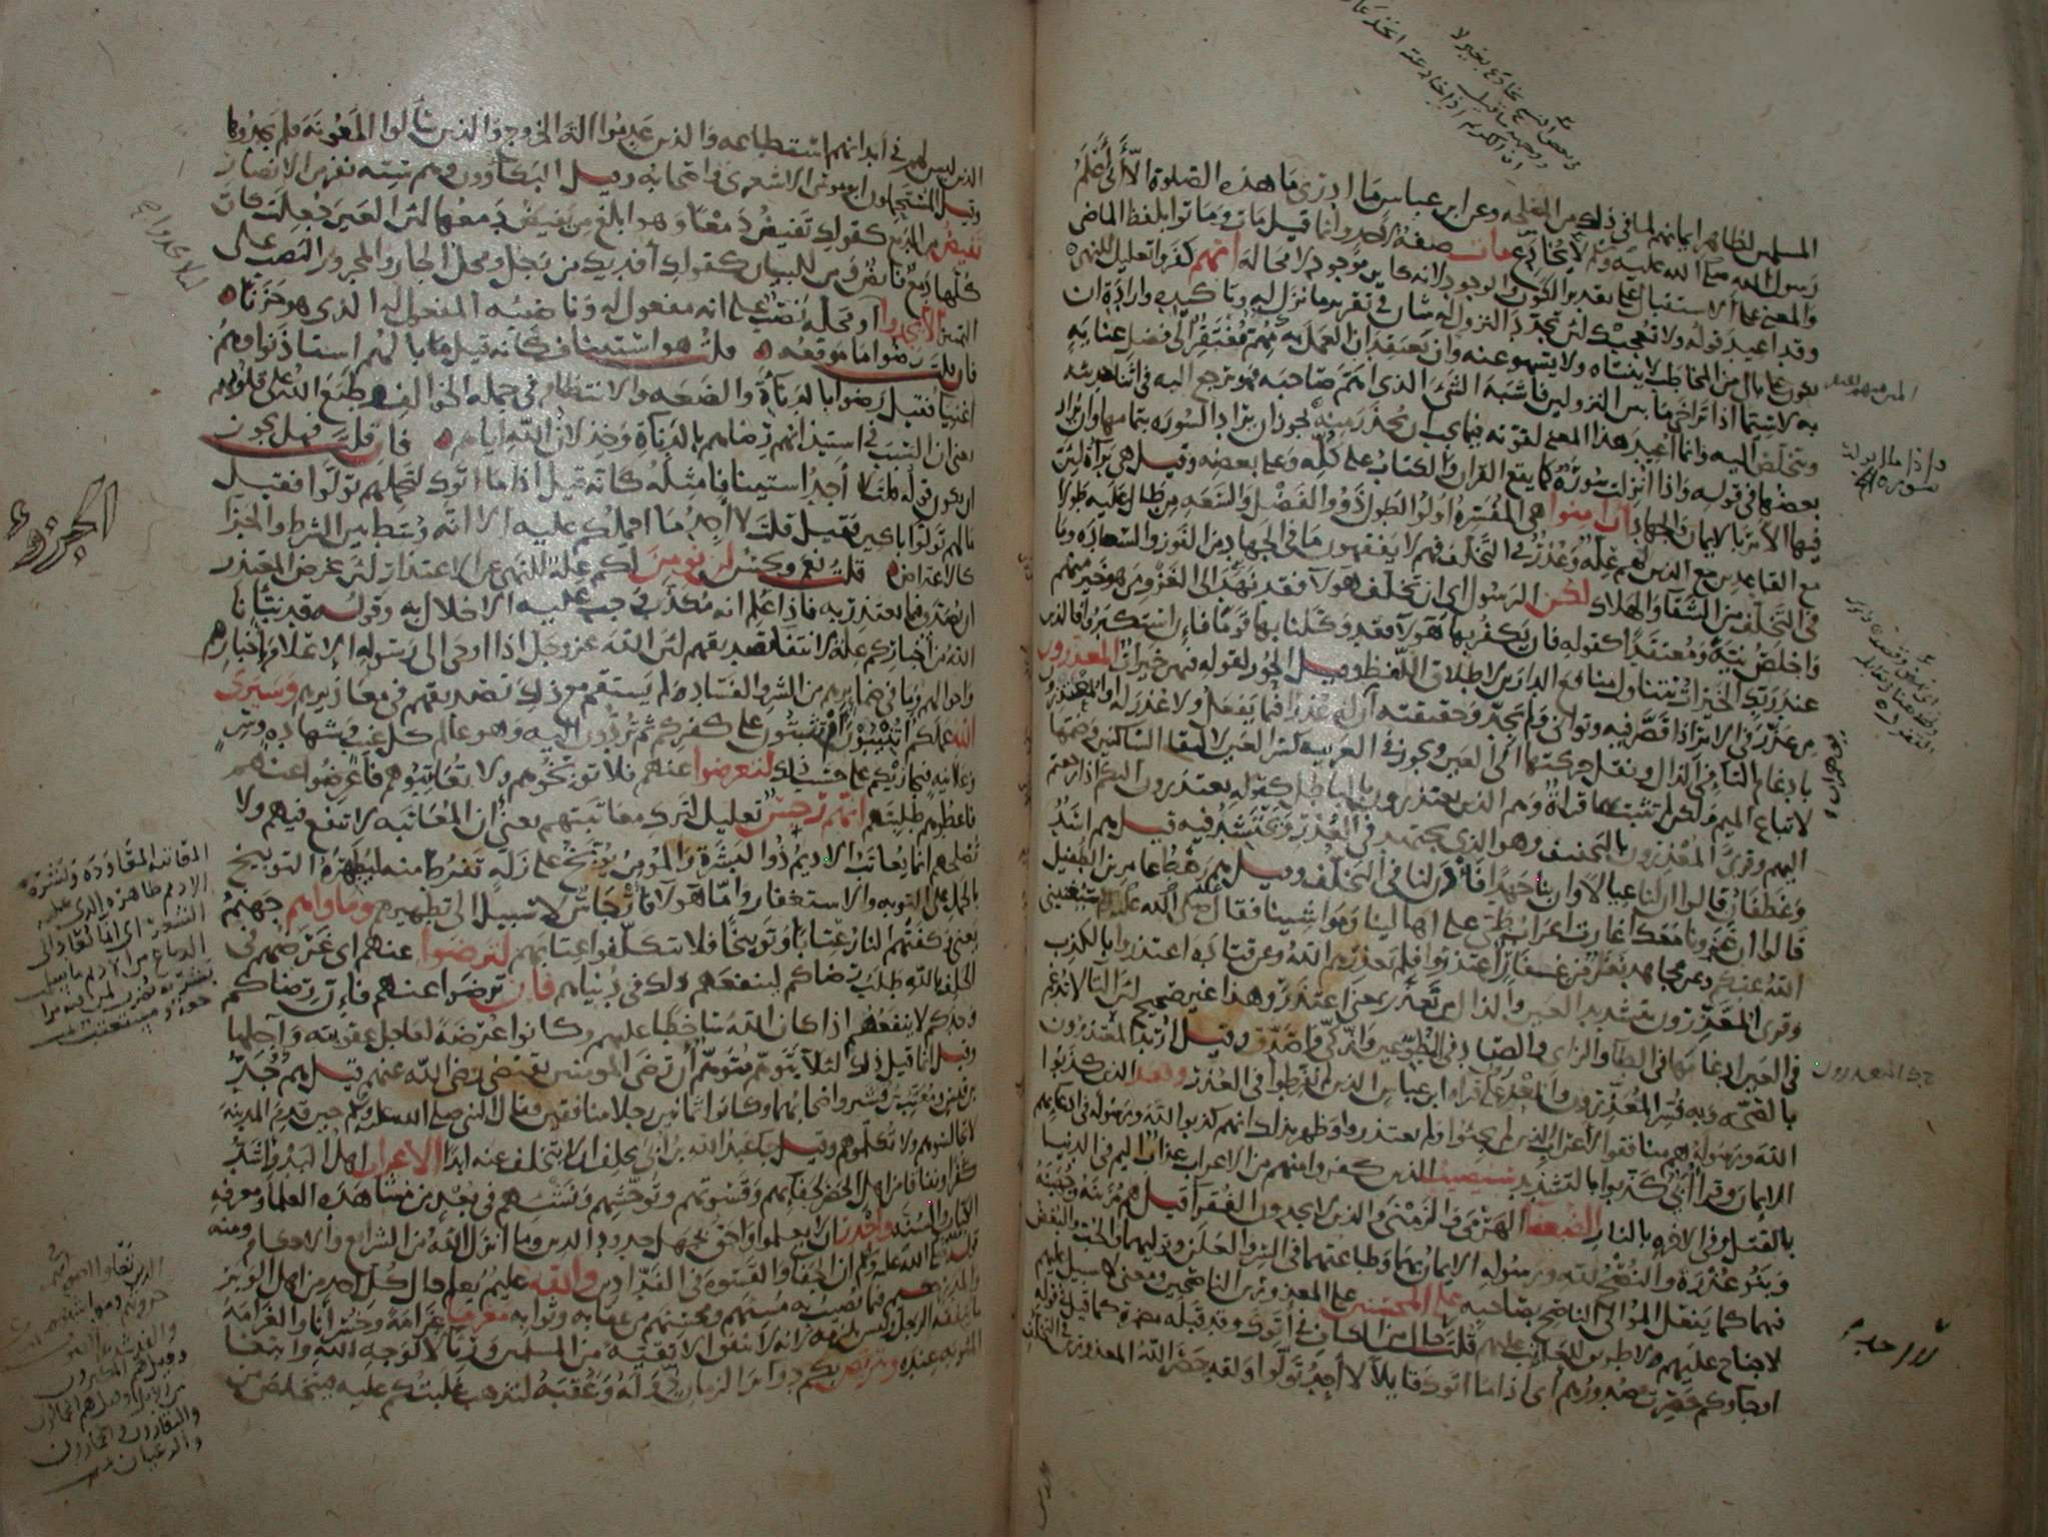 المسلمين لظاهر ايمانهم لما في ذلك من المصلحه وعن ابن عباس ما ادري ما هذه الصلوة الا أني أعلم
رسول الله صلى الله عليه وسلم لا يخادع مات صفة لأحد وانما قيل مات وماتوا بلفظ الماضي
والمعنى على الاستقبال على تقدير الكون والوجود لانه كاين موجود لا محالة انهم كفروا تعليل للنهي
وقد أعيد قوله ولا تعجبك لان تجدد النزول له شان في تقرير ما نزل له وتاكيده وارادة ان
يكون على بال من المخاطب لا ينساه ولا يسهو عنه وان يعتقد ان العمل به مهم مفتقر الى فضل عناية
به لا سيما اذا تراخى ما بين النزولين فاشبه الشئ الذي اهم صاحبه فهو يرجع اليه في اثنا حديثه
ويتخلص اليه وانما أعيد هذا المعنى لقوته فيما يجب ان يحذر منه يجوز ان يراد السورة بتمامها وان يراد
بعضها في قوله واذا انزلت سورة كما يقع القران والكتاب على كله وعلى بعضه وقيل هي براة لان
فيها الأمر بالايمان والجهاد ان امنوا هي المفسرة اولوا الطول ذوو الفضل والسعة من طال عليه طولا
مع القاعدين مع الذين لهم علة وعذر في التخلف فهم لا يفقهون ما في الجهاد من الفوز والسعادة وما
في التخلف من الشقا والهلاك لكن الرسول اي ان تخلف هولا فقد نهد الى الغزو من هو خير منهم
واخلص نية ومعتقدا كقوله فان يكفر بها هولا فقد وكلنا بها قوما فان استكبروا فالذين
عند ربك الخيرات تتناول منافع الدارين لاطلاق اللفظ وقيل الحور لقوله فيهن خيرات المعذرون
من عذر في الامر اذا قصر فيه وتوانى ولم يجد وحقيقته أن له عذرا فيما يفعل ولا عذر له او المعتذرون
بادغام التا في الذال ونقل حركتها الى العين ويجوز في العربية كسر العين لالتقا الساكنين وضمها
لاتباع الميم ولكن لم تثبت بهما قراة وهم الذين يعتذرون بالباطل كقوله يعتذرون اليكم اذا رجعتم
اليهم وقرئ المعذرون بالتخفيف وهو الذي يجتهد في العذر ويحتشد فيه قيل هم اسد
وغطفان قالوا ان لنا عيالا وان بنا جهدا فأذن لنا في التخلف وقيل هم رهط عامر بن الطفيل
قالوا ان غزونا معك اغارت اعراب طي على اهالينا ومواشينا فقال صلى الله عليه وسلم سيغنيني
الله عنكم وعن مجاهد نفر من غفار اعتذروا فلم يعذرهم الله وعن قتادة اعتذروا بالكذب
وقرئ المعذرون بتشديد العين والذال من تعذر بمعنى اعتذر وهذا غير صحيح لان التا لا تدغم
في العين ادغامها في الطا والزاي والصاد في المطوعين وازكى واصدق وقيل اريد المعتذرون
بالصحة وبه فسر المعذرون والمعذرون على قراة ابن عباس الذين لم يفرطوا في العذر وقعد الذين كذبوا
الله ورسوله هم منافقوا الاعراب الذين لم يجيئوا ولم يعتذروا وظهر بذلك انهم كذبوا الله ورسوله في ادعائهم
الايمان وقرا أبي كذبوا بالتشديد سيصيب الذين كفروا منهم من الاعراب عذاب اليم في الدنيا
بالقتل وفي الاخرة بالنار الضعفا الهرمى والزمنى والذين لا يجدون الفقرا قيل هم مزينة وجهينة
وبنو عذرة والنصح لله ورسوله الايمان بهما وطاعتهما في السر والعلن وتوليهما والحب والبغض
فيهما كما يفعل الموالي الناصح بصاحبه على المحسنين على المعذورين الناصحين ومعنى لا سبيل عليهم
لا جناح عليهم ولا طريق للعاتب عليهم قلت حال من الكاف في أتوك وقد قبله مضمرة كما قيل في قوله
اوجاوكم حصرت صدورهم اي اذا ما اتوك قايلا لا اجد تولوا ولقد حصر الله المعذورين في التخلف
الذين ليس لهم في أبدانهم استطاعه والذين عدموا الة الخروج والذين سألوا المعونة فلم يجدوها
وقيل المستحملون ابو موسى الاشعري واصحابه وقيل البكاؤون وهم ستة نفر من الانصار
تفيض من الدمع كقولك تفيض دمعا وهو ابلغ من يفيض دمعها لان العين جعلت كان
كلها دمع فايض ومن للبيان كقولك أفديك من رجل ومحل الجار والمجرور النصب على
التمييز الا يجدوا أو محله نصب على انه مفعول له وناصبه المفعول له الذي هو حزنا
فان قلت رضوا ما موقعه قلت هو استيناف كانه قيل ما بالهم استاذنوا وهم
اغنيا فقيل رضوا بالدناءة والضعه والانتظام في جملة الخوالف وطبع الله على قلوبهم
يعني ان السبب في استيذانهم رضاهم بالدناة وخذلان الله اياهم فان قلت فهل يجوز
ان يكون قوله قلت لا أجد استينافا مثله كانه قيل اذا ما اتوك لتحملهم تولوا فقيل
ما لهم تولوا باكين فقيل قلت لا اجد ما احملكم عليه الا انه وسط بين الشرط والجزا
كالاعتراض قلت نعم ويحسن لن نومن لكم علة للنهي عن الاعتذار لان غرض المعتذر
ان يصدق فيما يعتذر به فاذا علم انه مكذب وجب عليه الاخلال به وقوله قد نبأنا
الله من اخباركم علة لانتفا تصديقهم لان الله عز وجل اذا اوحى الى رسوله الاعلام باخبارهم
واحوالهم وما في ضمايرهم من الشر والفساد لم يستقم مع ذلك تصديقهم في معاذيرهم وسيرى
الله عملكم أتنيبون أم تثبتون على كفركم ثم تردون اليه وهو عالم كل غيب وشهادة وسر
وعلانية فيجازيكم على حسب ذلك لتعرضوا عنهم فلا توبخوهم ولا تعاتبوهم فاعرضوا عنهم
فاعطوهم طلبتهم انهم رجس تعليل لترك معاتبتهم يعني ان المعاتبة لا تنفع فيهم ولا
تصلحهم انما يعاتب الاديم ذو البشرة والمومن يوبخ على زلة تفرط منه ليطهره التوبيخ
بالحمل على التوبه والاستغفار واما هولا فأرجاس لا سبيل الى تطهيرهم وماواهم جهنم
يعني وكفتهم النار عتابا وتوبيخا فلا تتكلفوا عتابهم لترضوا عنهم اي غرضهم في
الحلف بالله طلب رضاكم لينفعهم ذلك في دنياهم فان ترضوا عنهم فان رضاكم
وحدكم لا ينفعهم اذا كان الله ساخطا عليهم وكانوا عرضة لعاجل عقوبته وآجلها
وقيل انما قيل ذلك لئلا يتوهم متوهم أن رضى المومنين يقتضي رضى الله عنهم قيل هم جد
بن قيس ومعتب بن قشير واصحابهما وكانوا ثمانين رجلا منافقين فقال النبي صلى الله عليه وسلم حين قدم المدينة
لا تجالسوهم ولا تكلموهم وقيل جا عبد الله بن أبي يحلف ان لا يتخلف عنه ابدا الاعراب اهل البدو اشد
كفرا ونفاقا من اهل الحضر لجفائهم وقسوتهم وتوحشهم ونشئهم في بعد من مشاهدة العلما ومعرفة
الكتاب والسنة واجدر ان لا يعلموا واحق بجهل حدود الدين وما انزل الله من الشرائع والاحكام ومنه
قوله صلى الله عليه وسلم ان الجفا والقسوة في الفدادين والله عليم يعلم حال كل احد من اهل الوبر
والمدر حكيم فيما يصيب به مسيئهم ومحسنهم من عقابه وثوابه مغرما غرامة وخسرانا والغرامة
ما ينفقه الرجل وليس يلزمه لانه لا ينفق الا تقية من المسلمين وريا لا لوجه الله وابتغا
المثوبة عنده ويتربص بكم دوائر الزمان دوله وعقبه لتذهب غلبتكم عليه فيتخلص من